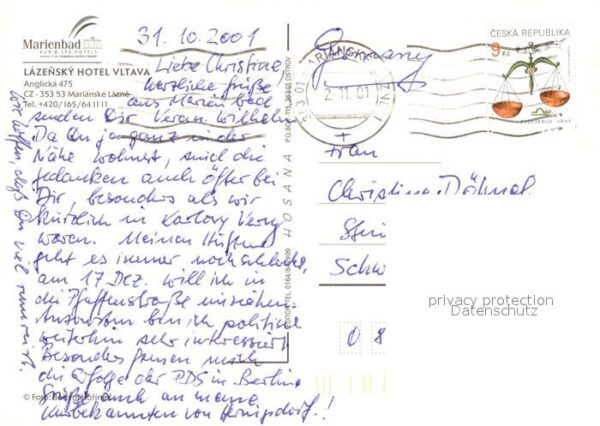 Marienbad
KUR & SPA HOTELS
LÁZEŇSKÝ HOTEL VLTAVA
Anglická 475
CZ - 353 53 Mariánské Lázně
Tel. +420/165/64 1111
31.10.2001
Liebe Christine
herzliche Grüße
aus Marienbad
senden Dir Veran Wilhelm
Da Du ja ganz in der
Nähe wohnst, sind die
Gedanken auch öfter bei
Dir, besonders als wir
kürzlich in Karlovy Vary
waren. Meinen Hüften
geht es immer noch schlecht,
am 17 Dez. will ich in
die Pfaffenstraße
Ansonsten bin ich politisch
weiterhin sehr interessiert.
Besonders freuen mich
die Erfolge der PDS in Berlin.
Grüße auch an meine
Kurbekannten von Hennigsdorf!
Wir hoffen, daß Du viel
© Foto:
HOSANA
P.O.BOX 115, 363 01 OSTROV
EDITOR TEL. 0164/
Germany
MARIÁNSKÉ
2.11.01
ČESKÁ REPUBLIKA
9 Kč
ZVĚROKRUH - VÁHY
Frau
Christina Döhnel
Stei
Schw
privacy protection
Datenschutz
0 8